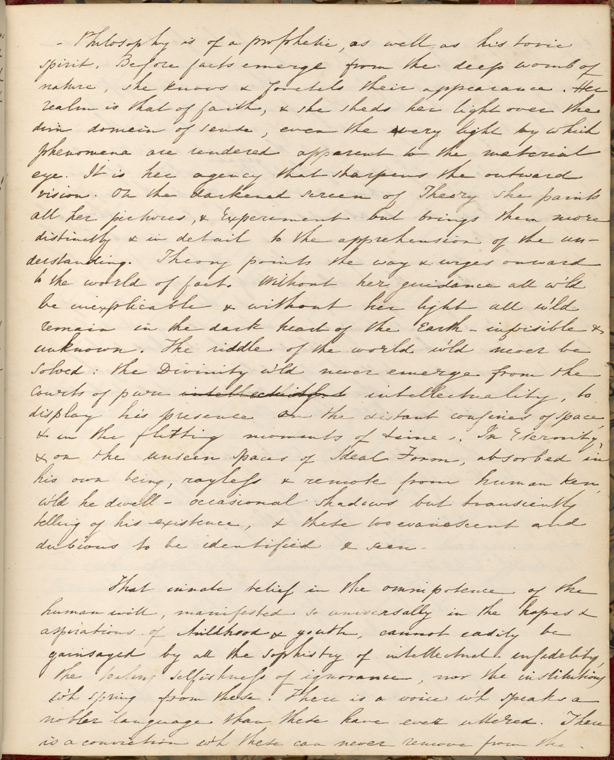 - Philosophy is of a prophetic, as well as historic
spirit. Before facts emerge from the deep womb of
nature, she knows & foretels their appearance. Her
realm is that of faith, & she sheds her light over the
dim domein of sense, even the very light by which
phenomena are rendered apparent to the material
eye. It is her agency that sharpens the outward
vision. On the darkened screen of Theory she paints
all her pictures, & Experiment but brings them more
distinctly & in detail to the apprehension of the un-
derstanding. Theory points the way & urges onward
to the world of fact. Without her guidance all w'ld
be inexplicable & without her light all w'ld
remain in the dark heart of the Earth - invisible &
unknown. The riddle of the world w'ld never be
solved: the Divinity w'ld never emerge from the
courts of pure intellectuality, to
display his presence on the distant confines of space,
& in the flitting moments of time. In Eternity,
& on the unseen spaces of Ideal Form, absorbed in
his own being, rayless & remote from human ken,
w'ld he dwell - occasional shadows but transiently
telling of his existence, & these too evanescent and
dubious to be identified & seen.
That innate belief in the omnipotence of the
human will, manifested so universally in the hopes &
aspirations of childhood & youth, cannot easily be
gainsayed by all the sophistry of intellectual infidelity,
the selfishness of ignorance, nor the institutions
wh spring from these. There is a voice wh speaks a
nobler language than these have ever uttered. There
is a conviction wh these can never remove from the